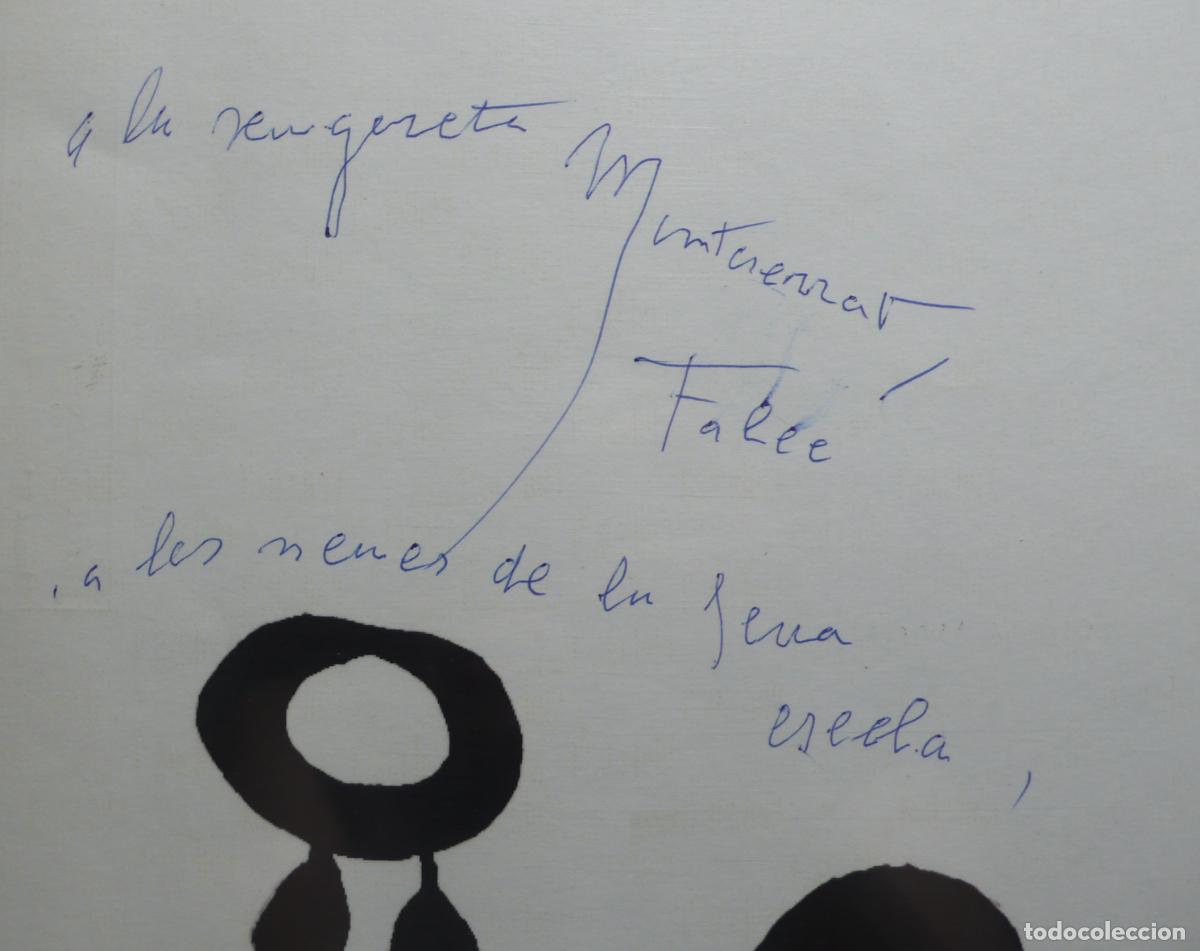 a la senyoreta
Montserrat
Falcé
, a les nenes de la seva
escola,
todocoleccion